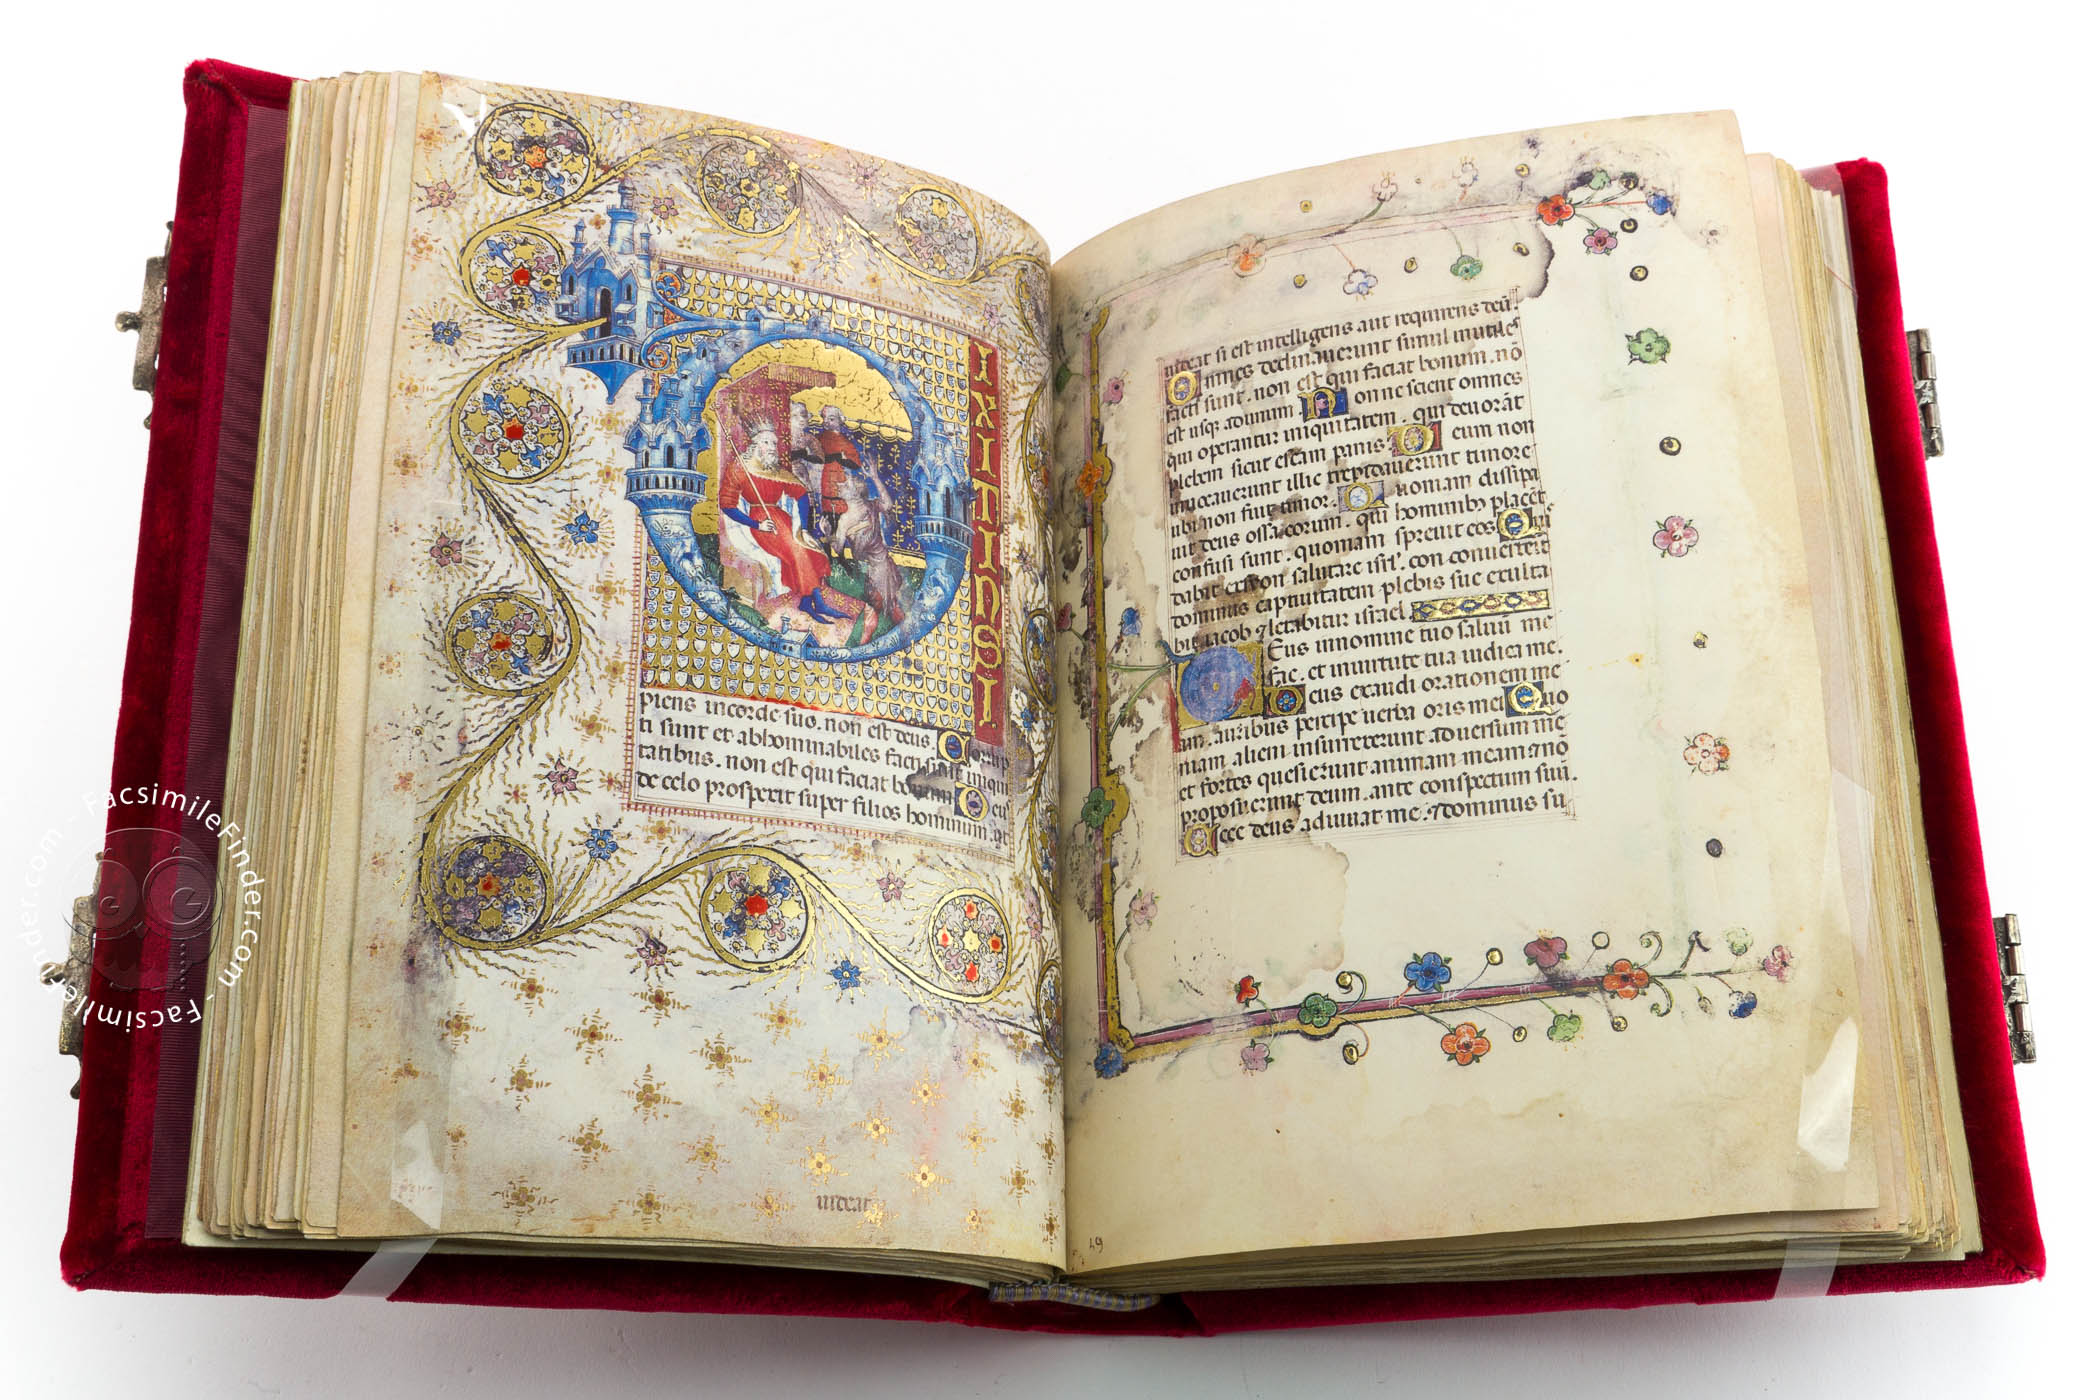 D
IXITINSI
piens incorde suo. non est deus. Corrup
ti sunt et abhominabiles facti sunt iniqui
tatibus. non est qui faciat bonum. Deus
de celo prosperit super filios hominum. ut
uideat
uideat si est intelligens aut requirens deū.
Omnes declinauerunt simul inutiles
facti sunt. non est qui faciat bonum. nō
est usq; ad unum. Nonne scient omnes
qui operantur iniquitatem. qui deuorāt
plebem sicut escam panis. Deum non
inuocauerunt illic trepidauerunt timore
ubi non fuit timor. Quoniam dissipa
uit deus ossa eorum. qui hominibꝯ placēt
confusi sunt. quoniam spreuit eos Quis
dabit ex syon salutare isrl'. con conuerterit
dominus captiuitatem plebis sue exulta
bit iacob ⁊ letabitur israel
Deus innomine tuo saluū me
fac. et inuirtute tua iudica me.
Deus exaudi orationem me
am. auribus percipe uerba oris mei Quo
niam alieni insurrexerunt aduersum me
et fortes quesierunt animam meam ⁊ nō
proposuerunt deum. ante conspectum suū.
Ecce deus adiuuat me. ⁊ dominus su
49
FacsimileFinder.com - FacsimileFinder.com -